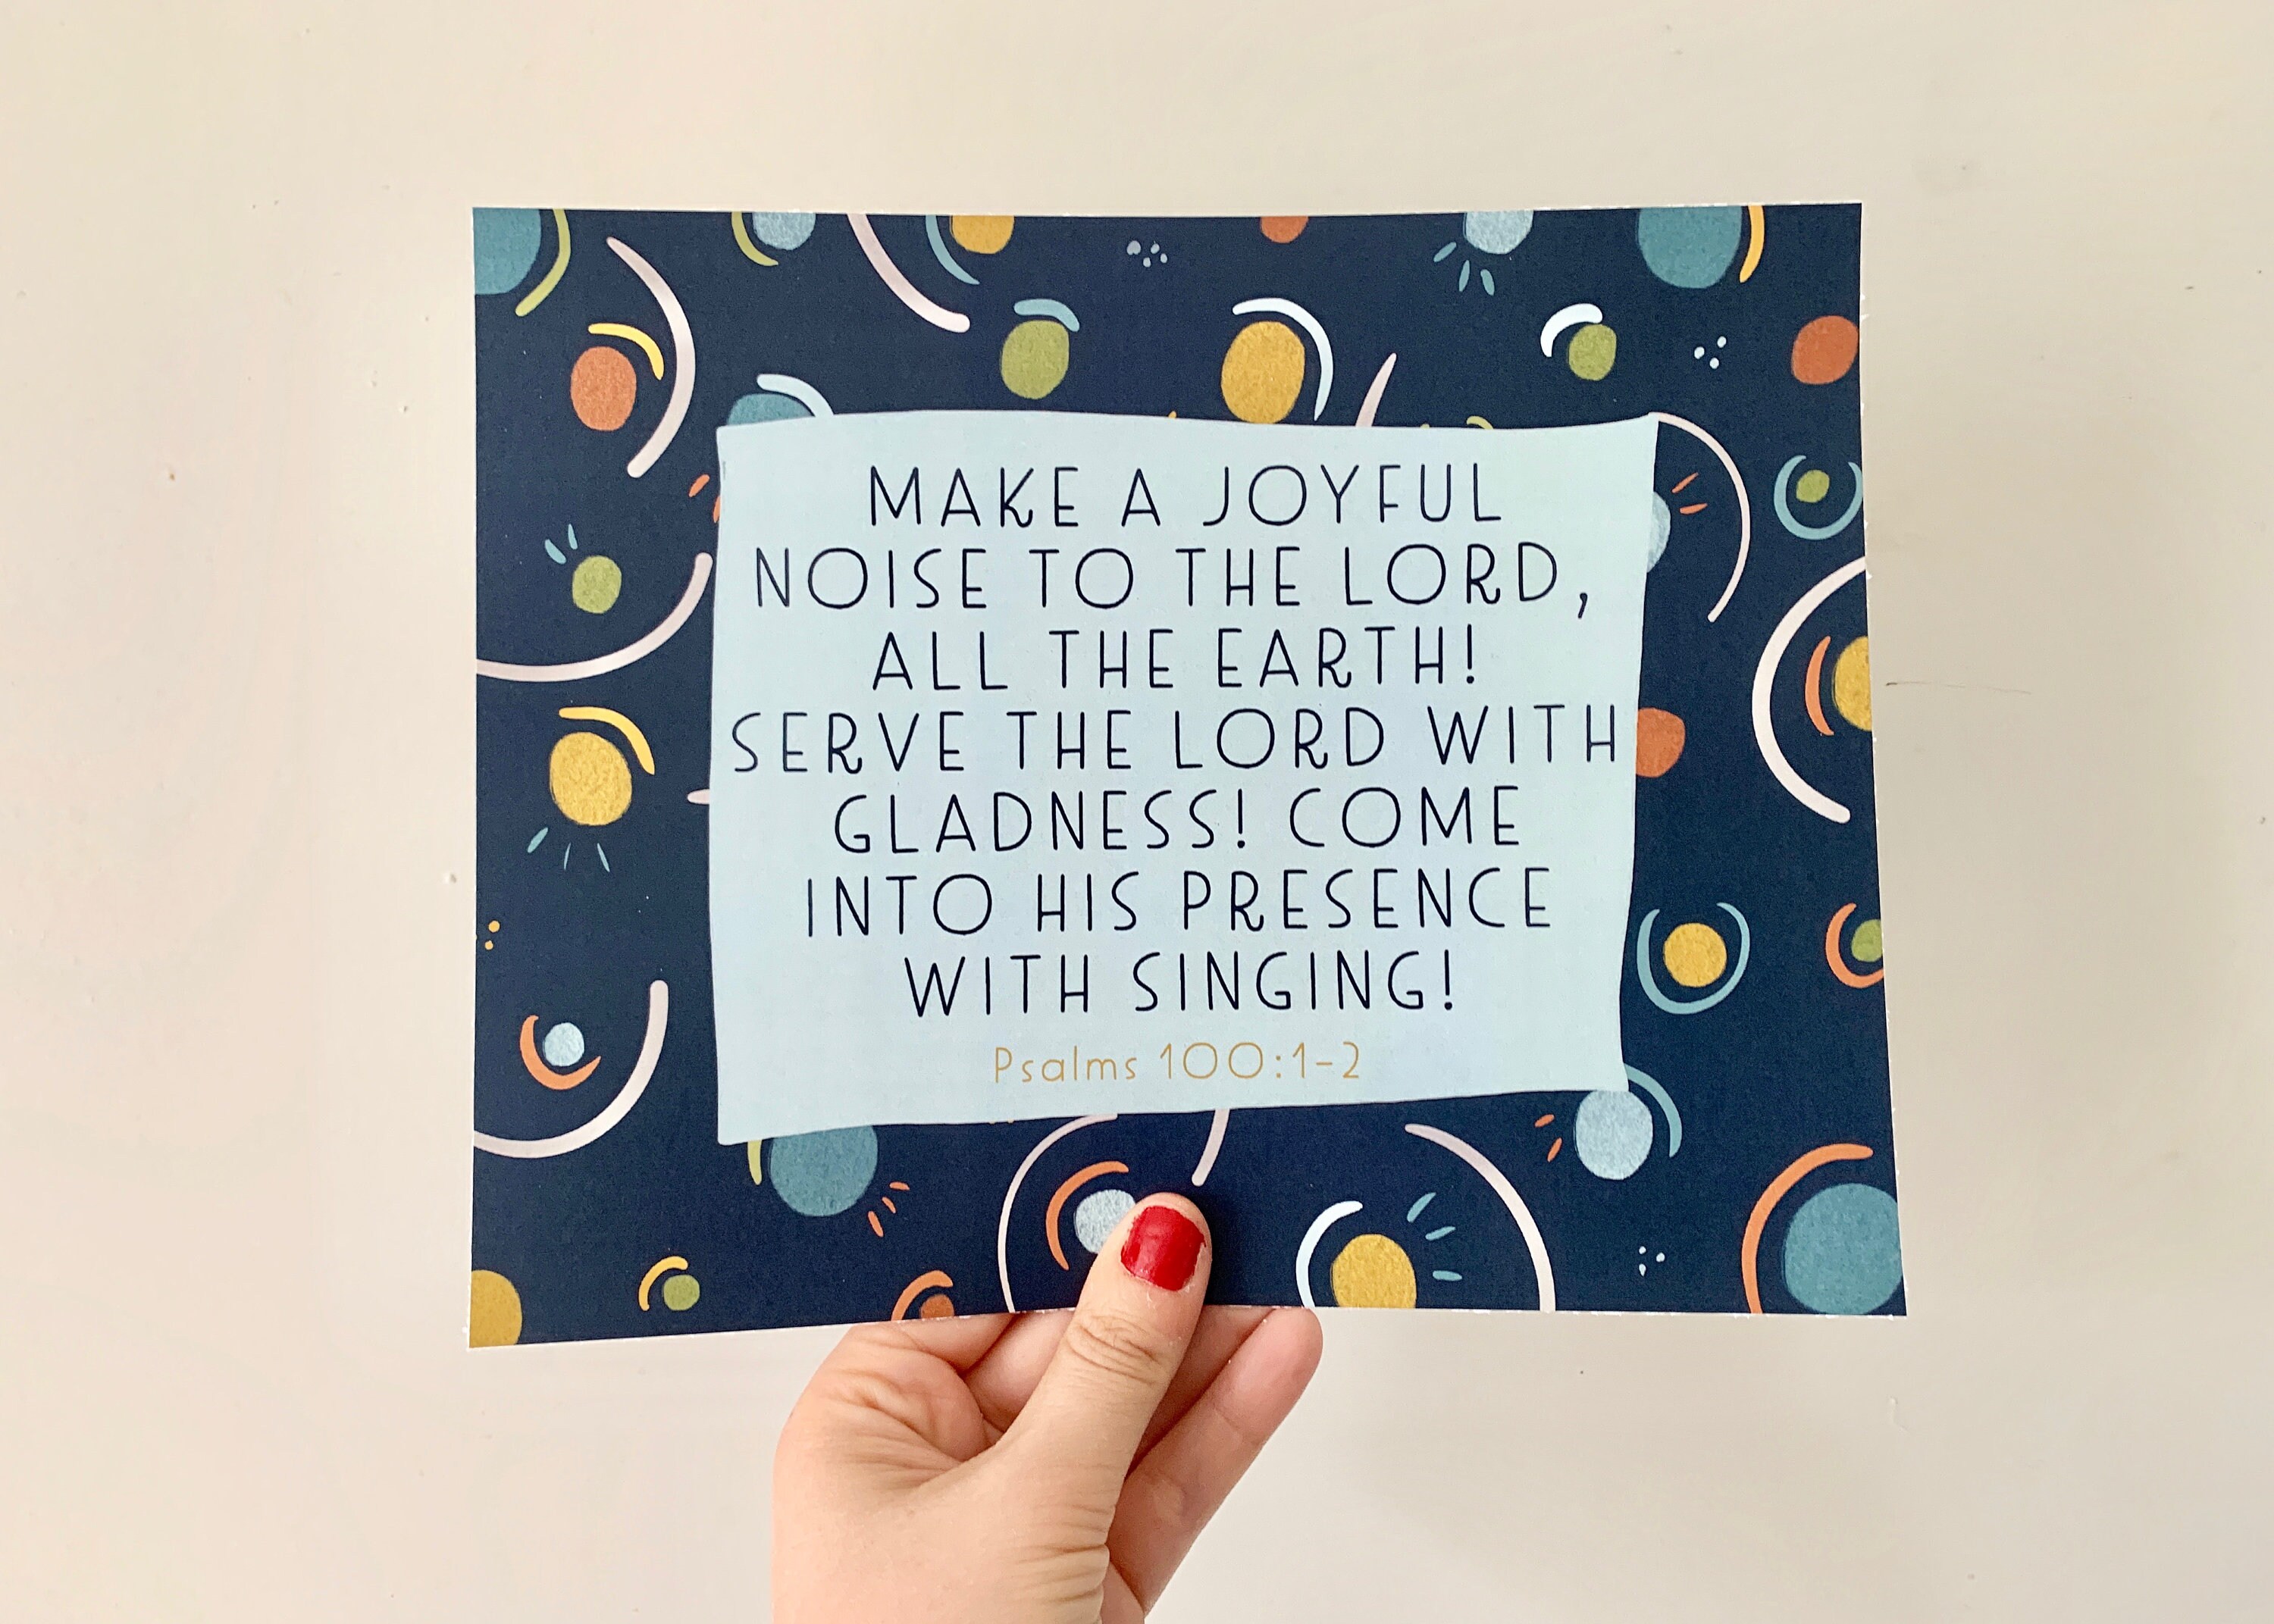 MAKE A JOYFUL
NOISE TO THE LORD,
ALL THE EARTH!
SERVE THE LORD WITH
GLADNESS! COME
INTO HIS PRESENCE
WITH SINGING!
Psalms 100:1-2